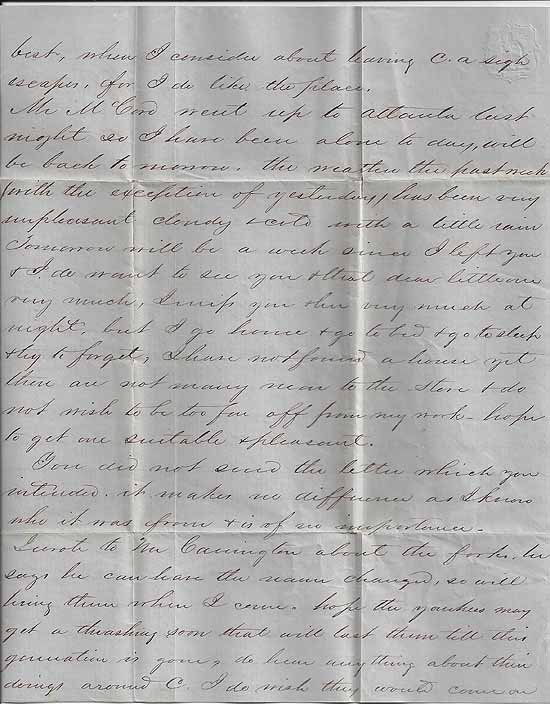 best, when I consider about leaving C. a sigh
escapes, for I do like the place.
Mr McCord went up to Atlanta last
night so I have been alone to day, will
be back tomorrow. the weather the past week
(with the exception of yesterday) has been very
unpleasant cloudy & cold with a little rain
Tomorrow will be a week since I left you
& I do want to see you & that dear little one
very much, I miss you & her very much at
night, but I go home & go to bed & go to sleep
& try to forget, I have not found a house yet
there are not many near to the store & do
not wish to be too far off from my work - hope
to get one suitable & pleasant.
You did not send the letter which you
intended. it makes no difference as I know
who it was from & is of no importance.
I wrote to Mr Carrington about the forks. he
says he can have the name changed, so will
bring them when I come. hope the yankees may
get a thrashing soon that will last them till this
generation is gone, do hear anything about their
doings around C. I do wish they would come on